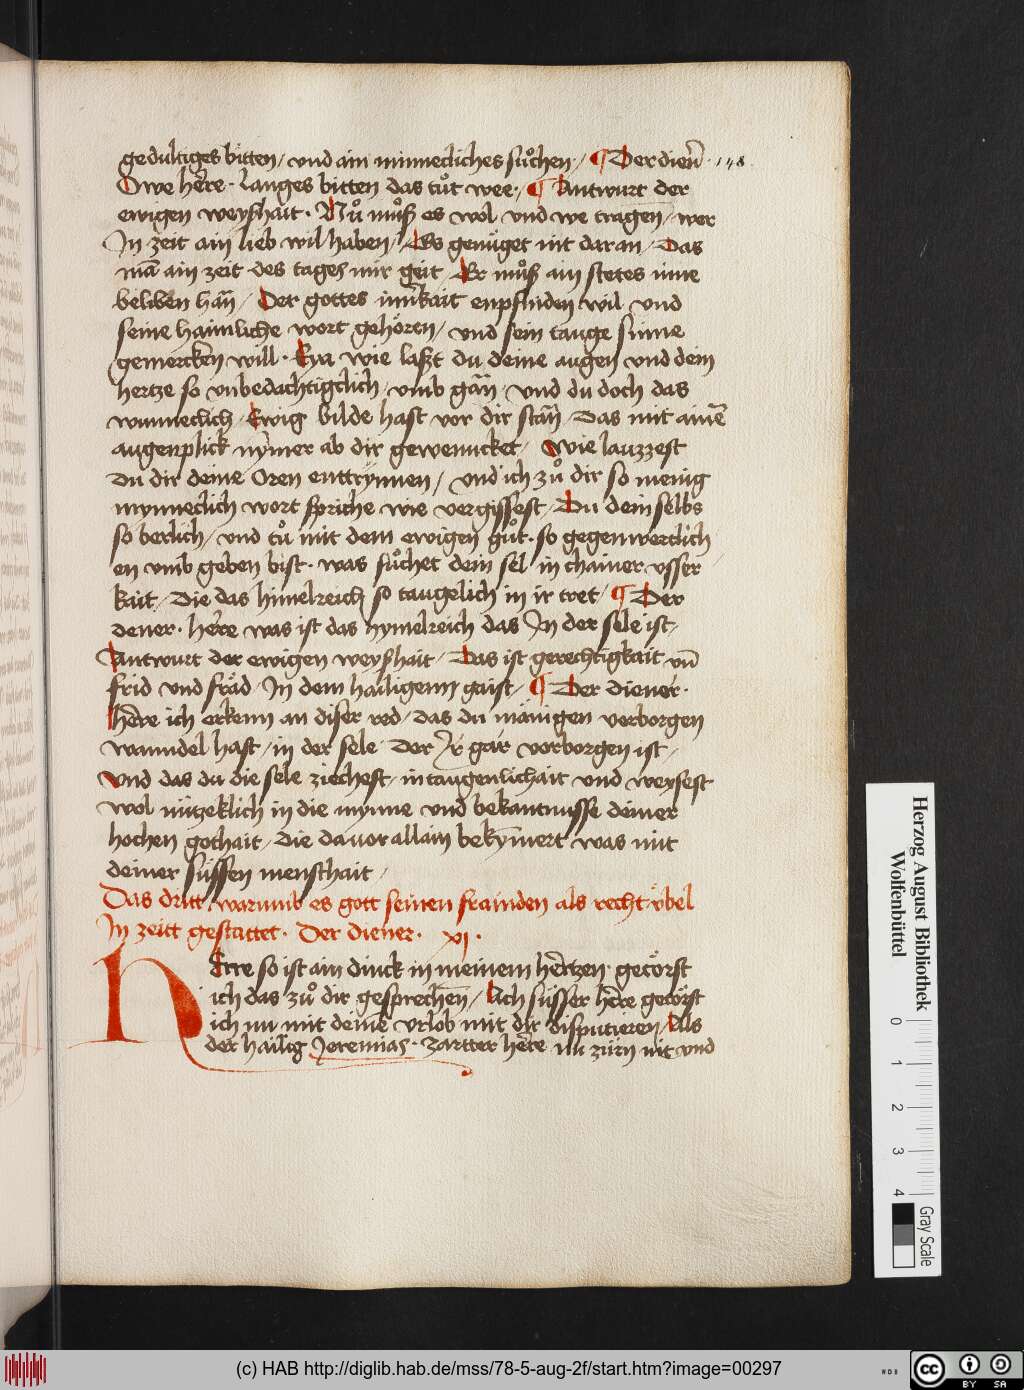 gedultiges bitten / vnd ain minnecliches sůchen / ¶ Der dien̄ · 148.
Owe h̄ere · langes bitten das tůt wee · ¶ Antwurt der
ewigen weyßhait · Nů můß es wol vnd we tragen / wer
In zeit ain lieb wil haben / Es genüget nit daran / Das
mā ain zeit des tages mir geit / Er můß ain stetes inne
beliben hān / Der gottes imikait enpfinden wil vnd
seine haimliche wort gehören / vnd sein tauge sinne
gemercken will · Eya wie laßt du deine augen vnd dein
hertze so vnbedachtigclich / vmb gān / vnd du doch das
wunneclich / Ewig bilde hast vor dir stān / Das nit ainē
augenplick nymer ab dir gewencket / Wie lauzzest
du dir deine Oren enttrynnen / vnd ich zů dir so menig
mynneclich wort spriche wie vergissest / Du dein selbs
so berlich / vnd tů mit dem ewigen gůt · so gegenwertclich
en vmb geben bist · was sůchet dein sel in chainer vsser
kait / Die das himelreich so taugelich in ir tret / ¶ Der
dener · h̄ere was ist das hymelreich das In der sele ist /
Antwurt der ewigen weyßhait / Das ist gerechtigkait vn̄
frid vnd fräd / In dem hailigenn gaist / ¶ Der diener ·
h̄ere ich erkenn an diser red / das du mänigen verborgen
wanndel hast / in der sele der Ir gar verborgen ist /
Vnd das du die sele ziechest / in taugenlichait vnd weysest
wol nützeklich in die mynne vnd bekantnusse deiner
hochen gothait / die dauor allain bekȳmert was mit
deiner süssen menschait /
Das dritt / warumb es gott seinen frainden als recht übel
In zeitt gestattet · Der diener · xj ·
HErre so ist ain dinck in meinem hertzen · getörst
ich das zů dir gesprechēn / Ach süsser h̄ere getörst
ich nu mit deinē vrlob mit dir disputieren / Als
der hailig Jeremias · zartter h̄ere nu zürn nit vnd
Herzog August Bibliothek
Wolfenbüttel
0 1 2 3 4
Gray Scale
(c) HAB http://diglib.hab.de/mss/78-5-aug-2f/start.htm?image=00297
WDB
cc BY SA